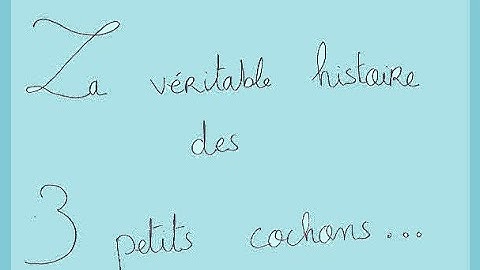 La véritable histoire
des
3 petits cochons...